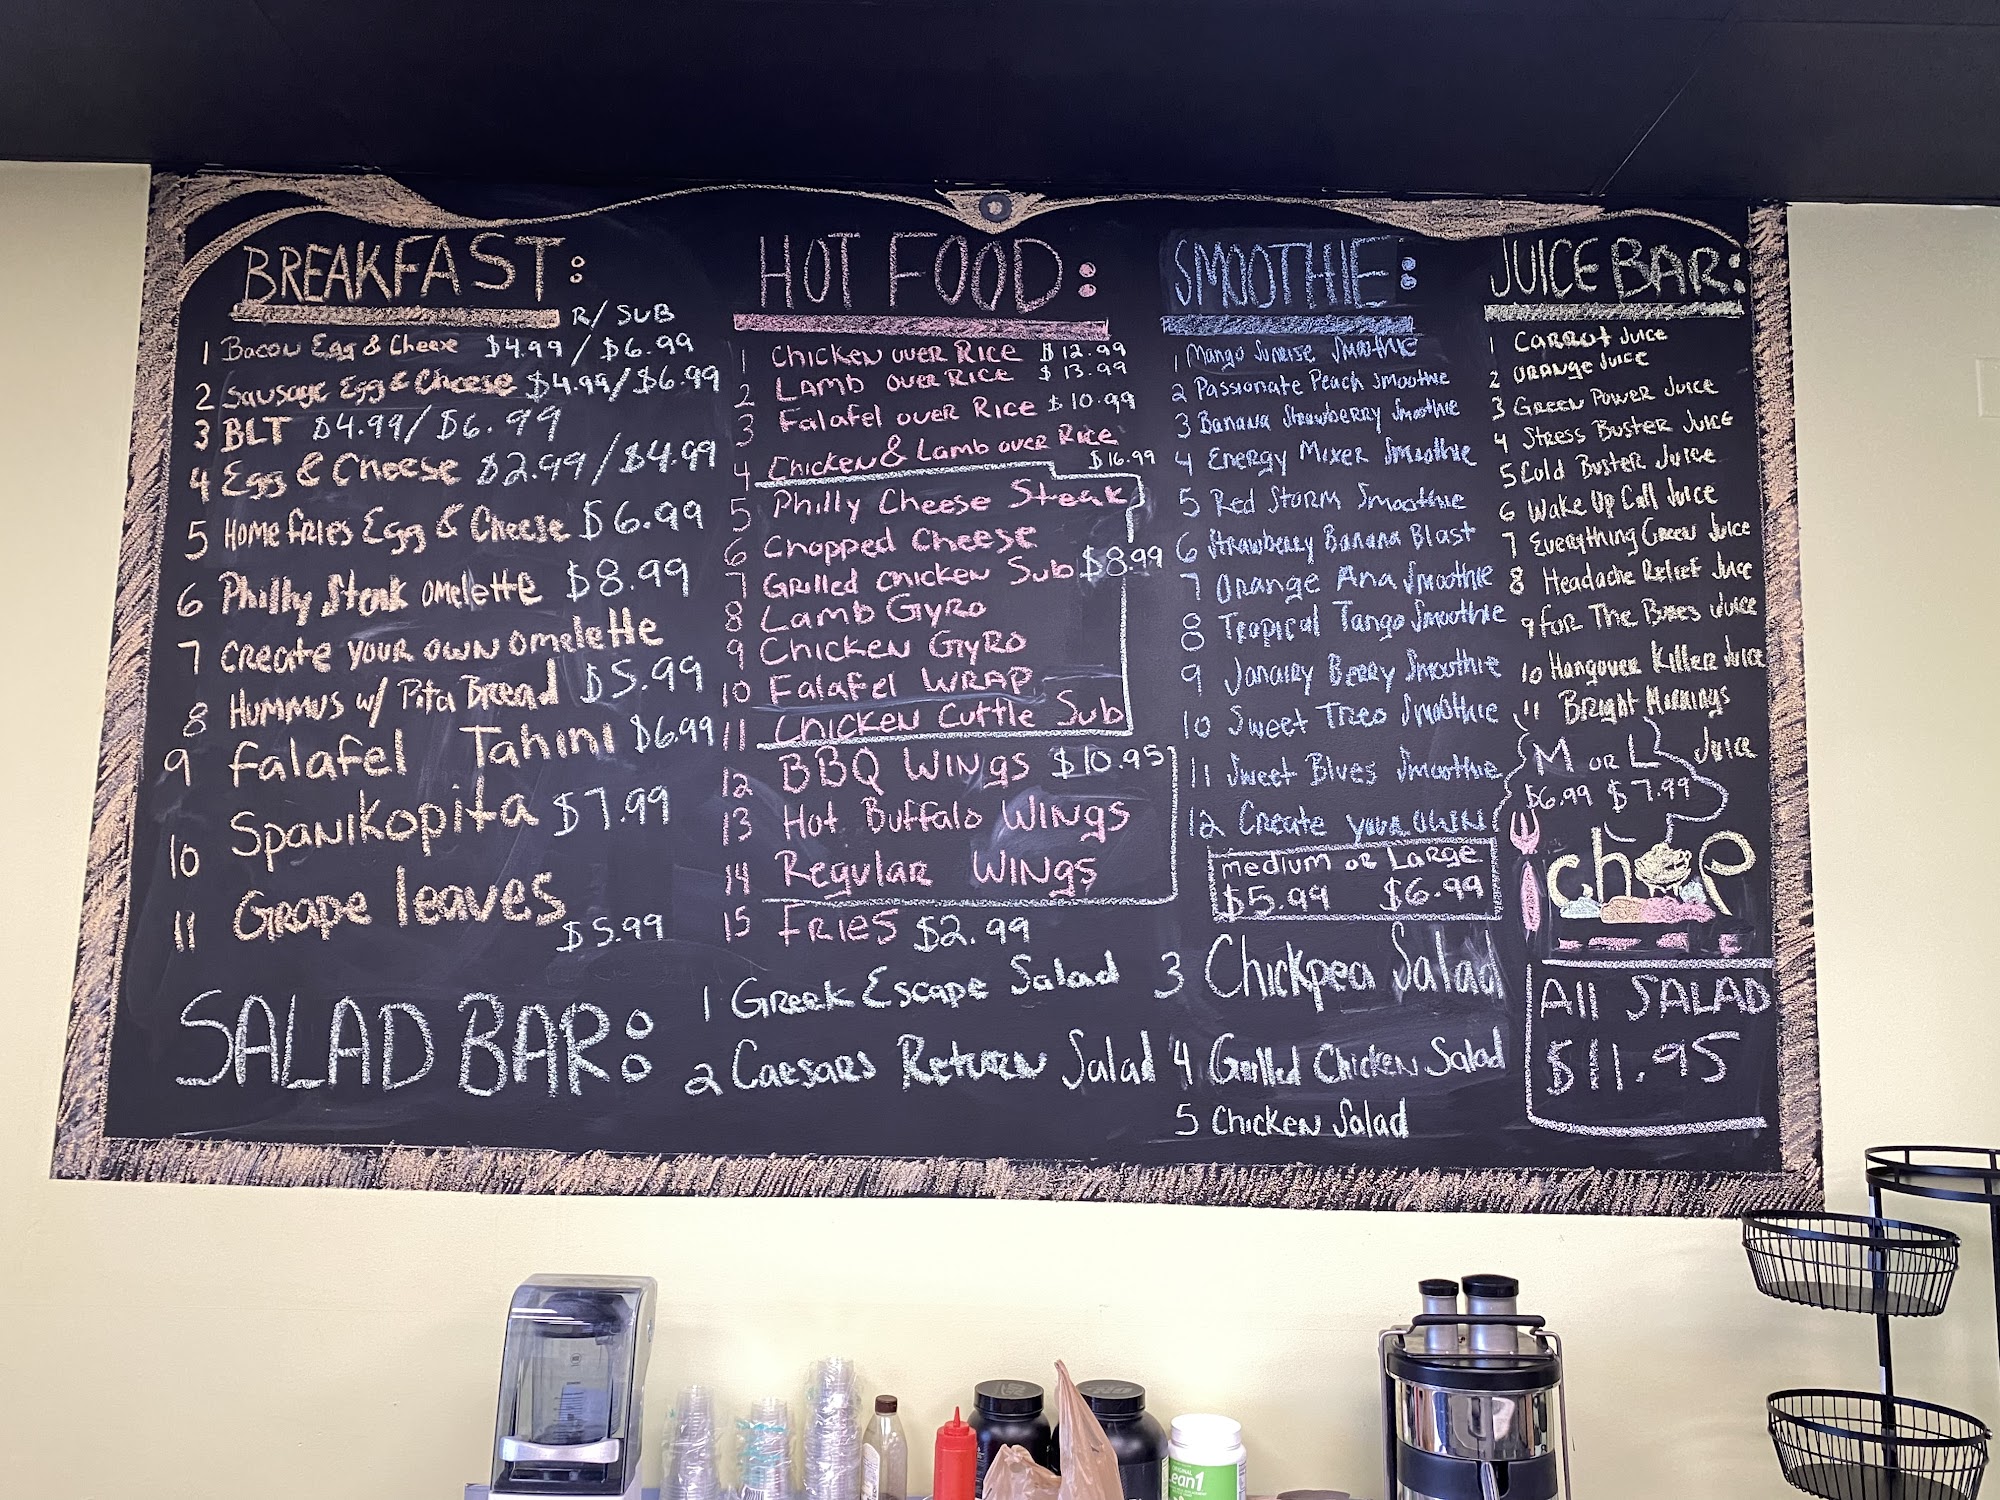 BREAKFAST:
R/ SUB
1 Bacon Egg & Cheese $4.99 / $6.99
2 Sausage Egg & Cheese $4.99/$6.99
3 BLT $4.99/$6.99
4 Egg & Cheese $2.99/$4.99
5 Home fries Egg & Cheese $6.99
6 Philly Steak omelette $8.99
7 Create your own omelette
8 Hummus w/ Pita Bread $5.99
9 Falafel Tahini $6.99
10 Spanikopita $7.99
11 Grape leaves
$5.99
HOT FOOD:
1 Chicken over Rice $12.99
2 Lamb over Rice $13.99
3 Falafel over Rice $10.99
4 Chicken & Lamb over Rice
$16.99
5 Philly Cheese Steak
6 Chopped Cheese
7 Grilled chicken Sub $8.99
8 Lamb Gyro
9 Chicken Gyro
10 Falafel WRAP
11 Chicken Cuttle Sub
12 BBQ Wings $10.95
13 Hot Buffalo Wings
14 Regular Wings
15 Fries $2.99
SMOOTHIE:
1 Mango Sunrise Smoothie
2 Passionate Peach Smoothie
3 Banana Strawberry Smoothie
4 Energy Mixer Smoothie
5 Red Storm Smoothie
6 Strawberry Banana Blast
7 Orange Ana Smoothie
8 Tropical Tango Smoothie
9 Berry Smoothie
10 Sweet Treo Smoothie
11 Sweet Blues Smoothie
12 Create your own
Medium or Large
$5.99 $6.99
JUICE BAR:
1 Carrot Juice
2 Orange Juice
3 Green Power Juice
4 Stress Buster Juice
5 Cold Buster Juice
6 Wake Up Call Juice
7 Everything Green Juice
8 Headache Relief Juice
9 For The Juice
10 Hangover Killer Juice
11 Bright Mornings
Juice
M or L
$6.99 $7.99
chop
SALAD BAR:
1 Greek Escape Salad
2 Caesars Return Salad
3 Chickpea Salad
4 Grilled Chicken Salad
5 Chicken Salad
All SALAD
$11.95
ean1